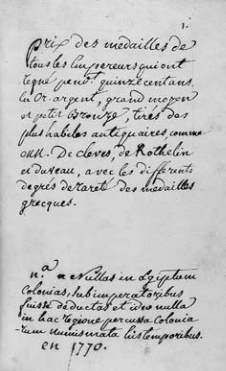 1.
Prix des medailles de
tous les Empereurs qui ont
regné pend.t quinze cent ans,
en Or, argent, grand moyen
et petit Bronze, tirés des
plus habiles antiquaires, comme
MM. De Cleves, de Rothelin
et duveau, avec les differents
degrés de rareté des medailles
grecques.
n.a nullas in Egyptum
Colonias, sub imperatoribus
fuisse deductas et ideo nulla
in hac regione percussa colonia-
rum numismata his temporibus.
en 1770.